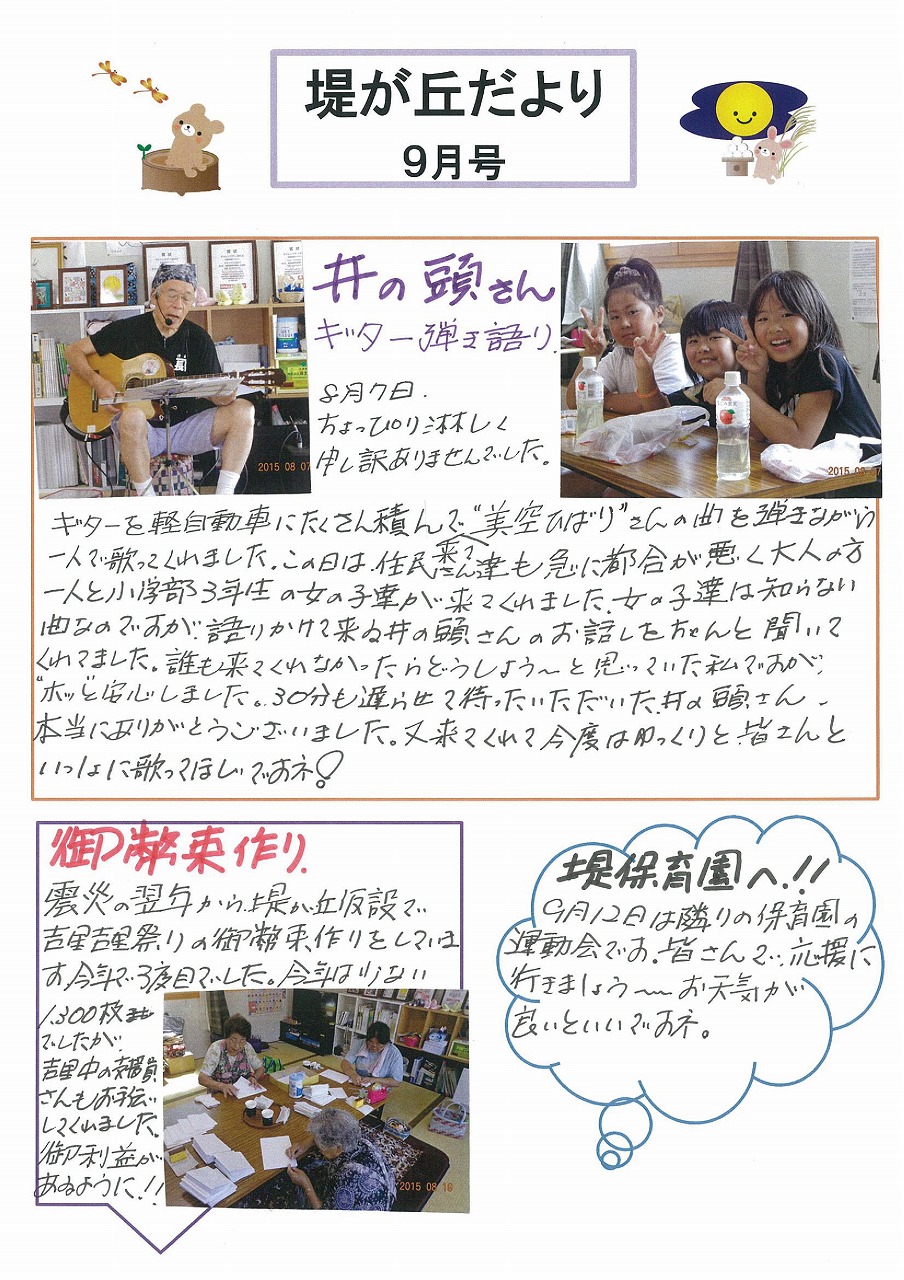 堤が丘だより
9月号
井の頭さん
ギター弾き語り
8月7日.
ちょっぴり淋しく
申し訳ありませんでした。
2015 08 07
2015 08 07
ギターを軽自動車にたくさん積んで"美空ひばり"さんの曲を弾きながら
一人で歌ってくれました。この日は、住民さん達も急に都合が悪く大人の方
一人と小学部3年生の女の子達が来てくれました。女の子達は知らない
曲なのですが、語りかけて来る井の頭さんのお話しをちゃんと聞いて
くれてました。誰も来てくれなかったらどうしよう〜と思っていた私ですが、
"ホッ"と安心しました。30分も遅らせて待ったいただいた井の頭さん、
本当にありがとうございました。又来てくれて今度はゆっくりと皆さんと
いっしょに歌ってほしいですネ!
御幣束作り.
震災の翌年から、堤が丘仮設で
吉里吉里祭りの御幣束作りをしていま
す。今年で3度目でした。今年は少ない
1.300枚
でしたが
吉里中の支援員
さんもお手伝い
してくれました。
御利益が
あるように!!
2015 08 19
堤保育園へ!!
9月12日は隣りの保育園の
運動会です。皆さんで、応援に
行きましょう〜 お天気が
良いといいですネ。